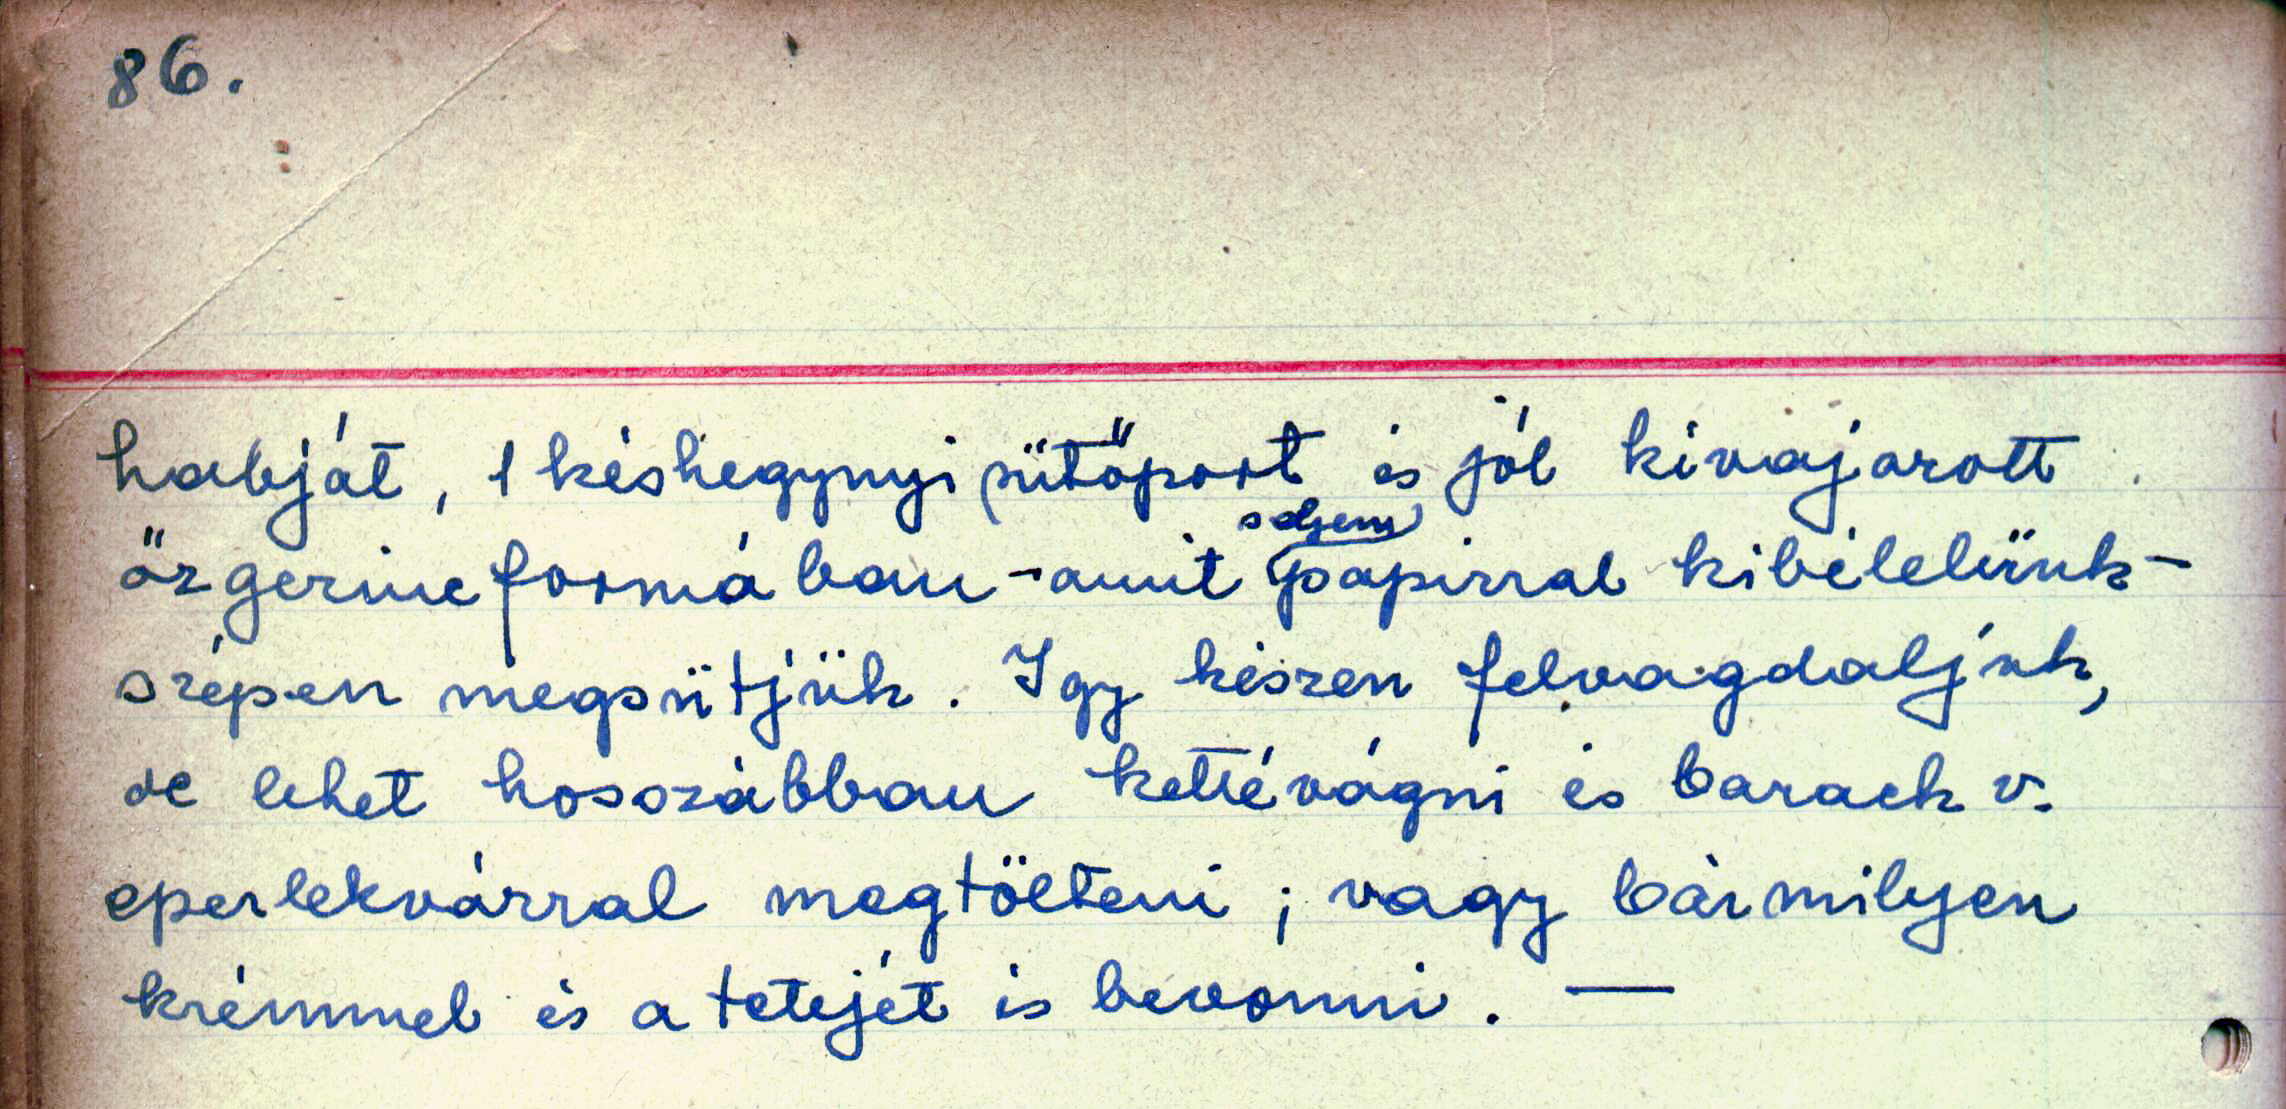 86.
habját, 1 késhegynyi sütőport és jól kivajarott
selyem
őzgerincformában - amit papirral kibélelünk -
szépen megsütjük. Igy készen felvagdaljuk,
de lehet hosszábban kettévágni és barack v.
eperlekvárral megtölteni; vagy bármilyen
krémmel és a tetejét is bevonni. —